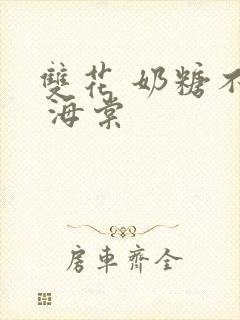 雙花 奶糖不
海棠
房車齊全